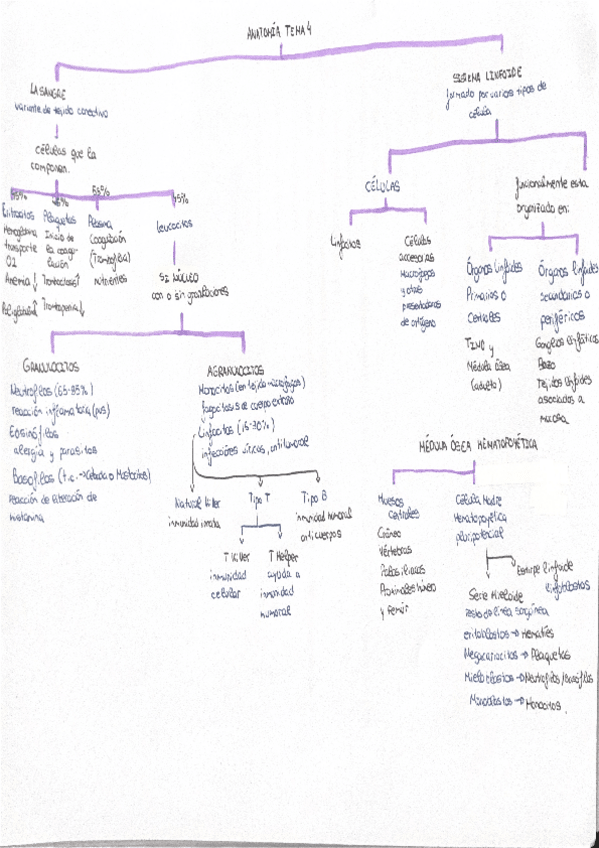 ANATOMÍA TEMA 4
LA SANGRE
variante de tejido conectivo
células que la
componen.
45%
Eritrocitos
Hemoglobina
transporte
O2
Anemia ↓
Poliglobulia ↑
Plaquetas
Inicio de
la coagu-
lación
Trombocitosis ↑
Trombopenia ↓
55%
Plasma
Coagulación
nutrientes
45%
leucocitos
SI NÚCLEO
con o sin granulaciones
GRANULOCITOS
Neutrófilos (65-85%)
reacción inflamatoria (pus)
Eosinófilos
alergia y parásitos
Basófilos (t.c. → Cebada o Mastocitos)
reacción de liberación de
histamina
AGRANULOCITOS
Monocitos (en tejido macrófagos)
fagocitosis de cuerpo extraño
Linfocitos (15-30%)
infecciones víricas, antitumoral
Natural killer
inmunidad innata
Tipo T
T Killer
inmunidad
celular
T Helper
ayuda a
inmunidad
humoral
Tipo B
inmunidad humoral
anticuerpos
SISTEMA LINFOIDE
formado por varios tipos de
célula
CÉLULAS
linfocitos
Células
accesorias
Macrófagos
y otras
presentadoras
de antígeno
funcionalmente está
organizado en:
Órganos linfoides
Primarios o
Centrales
TIMO y
Médula ósea
(adulto)
Órganos linfoides
secundarios o
periféricos
Ganglios linfáticos
Bazo
Tejidos linfoides
asociados a
mucosa
MÉDULA ÓSEA HEMATOPOYÉTICA
Huesos
centrales
Cráneo
Vértebras
Proximales húmero
y fémur
Célula Madre
Hematopoyética
pluripotencial
Estirpe linfoide
linfoblastos
Serie Mieloide
resto de línea sanguínea
eritoblastos → Hematíes
Megacariocitos → Plaquetas
Mieloblastos → Neutrófilos/
Monoblastos → Monocitos.